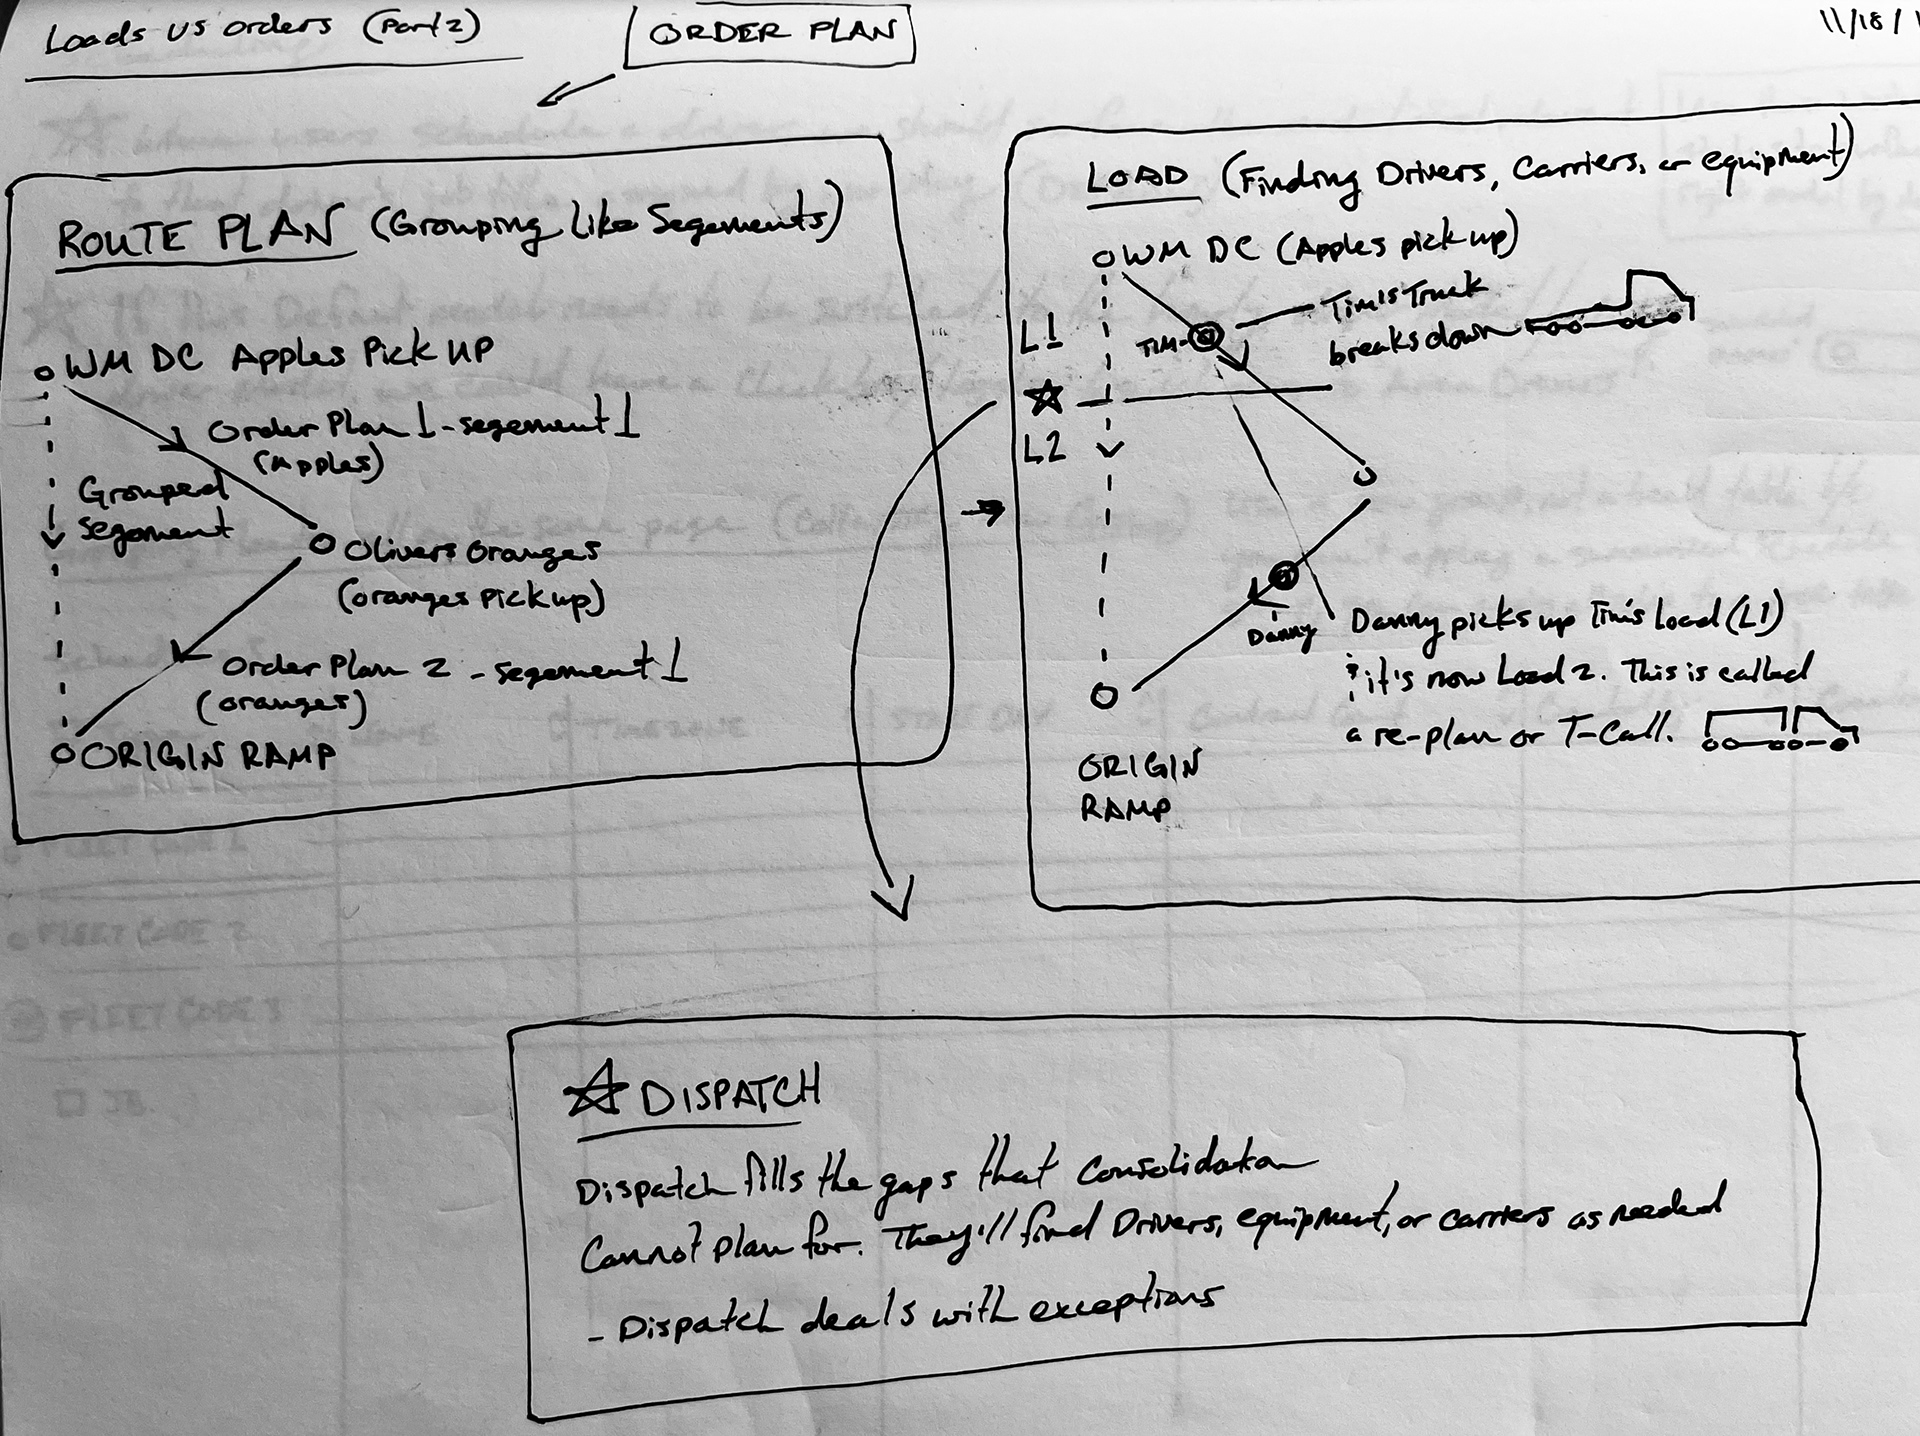 Loads vs orders (Part 2)
ORDER PLAN
11/18/1
ROUTE PLAN (Grouping Like Segements)
WM DC Apples Pick UP
Order Plan 1 - segement 1
(Apples)
Grouped
segement
Olivers Oranges
(oranges Pick up)
Order Plan 2 - segement 1
(oranges)
ORIGIN RAMP
LOAD (Finding Drivers, Carriers, or equipment)
WM DC (Apples pick up)
L1
TIM
Tim's Truck
breaks down
L2
Danny
Danny picks up Tim's Load (L1)
& it's now Load 2. This is called
a re-plan or T-Call.
ORIGIN
RAMP
DISPATCH
Dispatch fills the gaps that Consolidation
Cannot plan for. They'll find Drivers, equipment, or carriers as needed
- Dispatch deals with exceptions
FLEET CODE 2
FLEET CODE 3
TIMEZONE